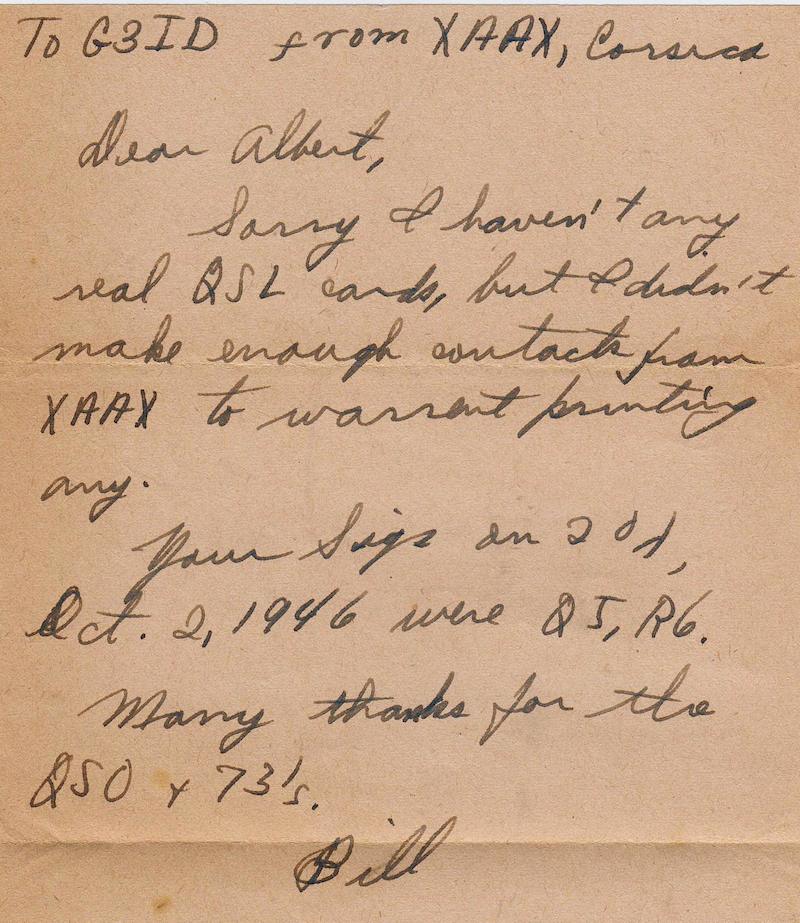 To G3ID from XAAX, Corsica
Dear Albert,
Sorry I haven't any
real QSL cards, but I didn't
make enough contacts from
XAAX to warrent printing
any.
Your Sigs on
Oct. 2, 1946 were Q5, R6.
Many thanks for the
QSO + 73's.
Bill